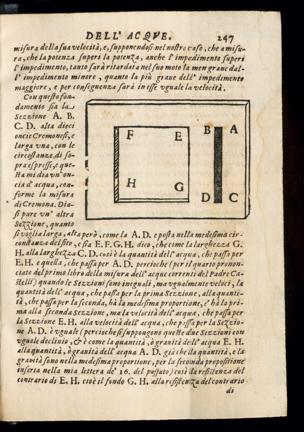 DELL' ACQVE. 247
misura della sua velocità, e, supponendosi nel nostro caso, che a misu-
ra, che la potenza superi la potenza, anche l' impedimento superi
l' impedimento, tanto sarà ritardata nel suo moto la men grave dal-
l' impedimento minore, quanto la più grave dell' impedimento
maggiore, e per conseguenza sarà in esse vguale la velocità.
Con questo fon-
damento sia la
Sezzione A. B.
C. D. alta dieci
oncie Cremonesi, e
larga vna, con le
circostanze di so-
pra espresse, e que-
sta mi dia vn' on-
cia d' acqua, con-
forme la misura
di Cremona. Dia-
si pure vn' altra
Sezzione, quanto
F E B A
H G D C
si voglia larga, alta però, come la A. D. e posta nella medesima cir-
constanza del sito, e sia E. F. G. H. dico, che come la larghezza G.
H. alla larghezza C. D. così è la quantità dell' acqua, che passa per
E. H. e quella, che passa per A. D. percioche (per il quarto pronon-
ciato del primo libro della misura dell' acque correnti del Padre Ca-
stelli) quando le Sezzioni sono ineguali, ma vgualmente veloci, la
quantità dell' acqua, che passa per la prima Sezzione, alla quanti-
tà, che passa per la seconda, hà la medesima proporzione, c' hà la pri-
ma alla seconda Sezzione, ma la velocità dell' acque, che passa per
la Sezzione E. H. alla velocità dell' acqua, che passa per la Sezzio-
ne A. D. è vguale (percioche si suppongono queste due Sezzioni con
vguale declivio, & è come la quantità, ò gravità dell' acqua E. H.
alla quantità, ò gravità dell' acqua A. D. già che la quantità, e la
gravità sono nella medesima proporzione, per la seconda propositione
inserta nella mia lettera de' 16. del passato) così la resistenza del
contrario di E. H. così il fondo G. H. alla resistenza del contrario
di